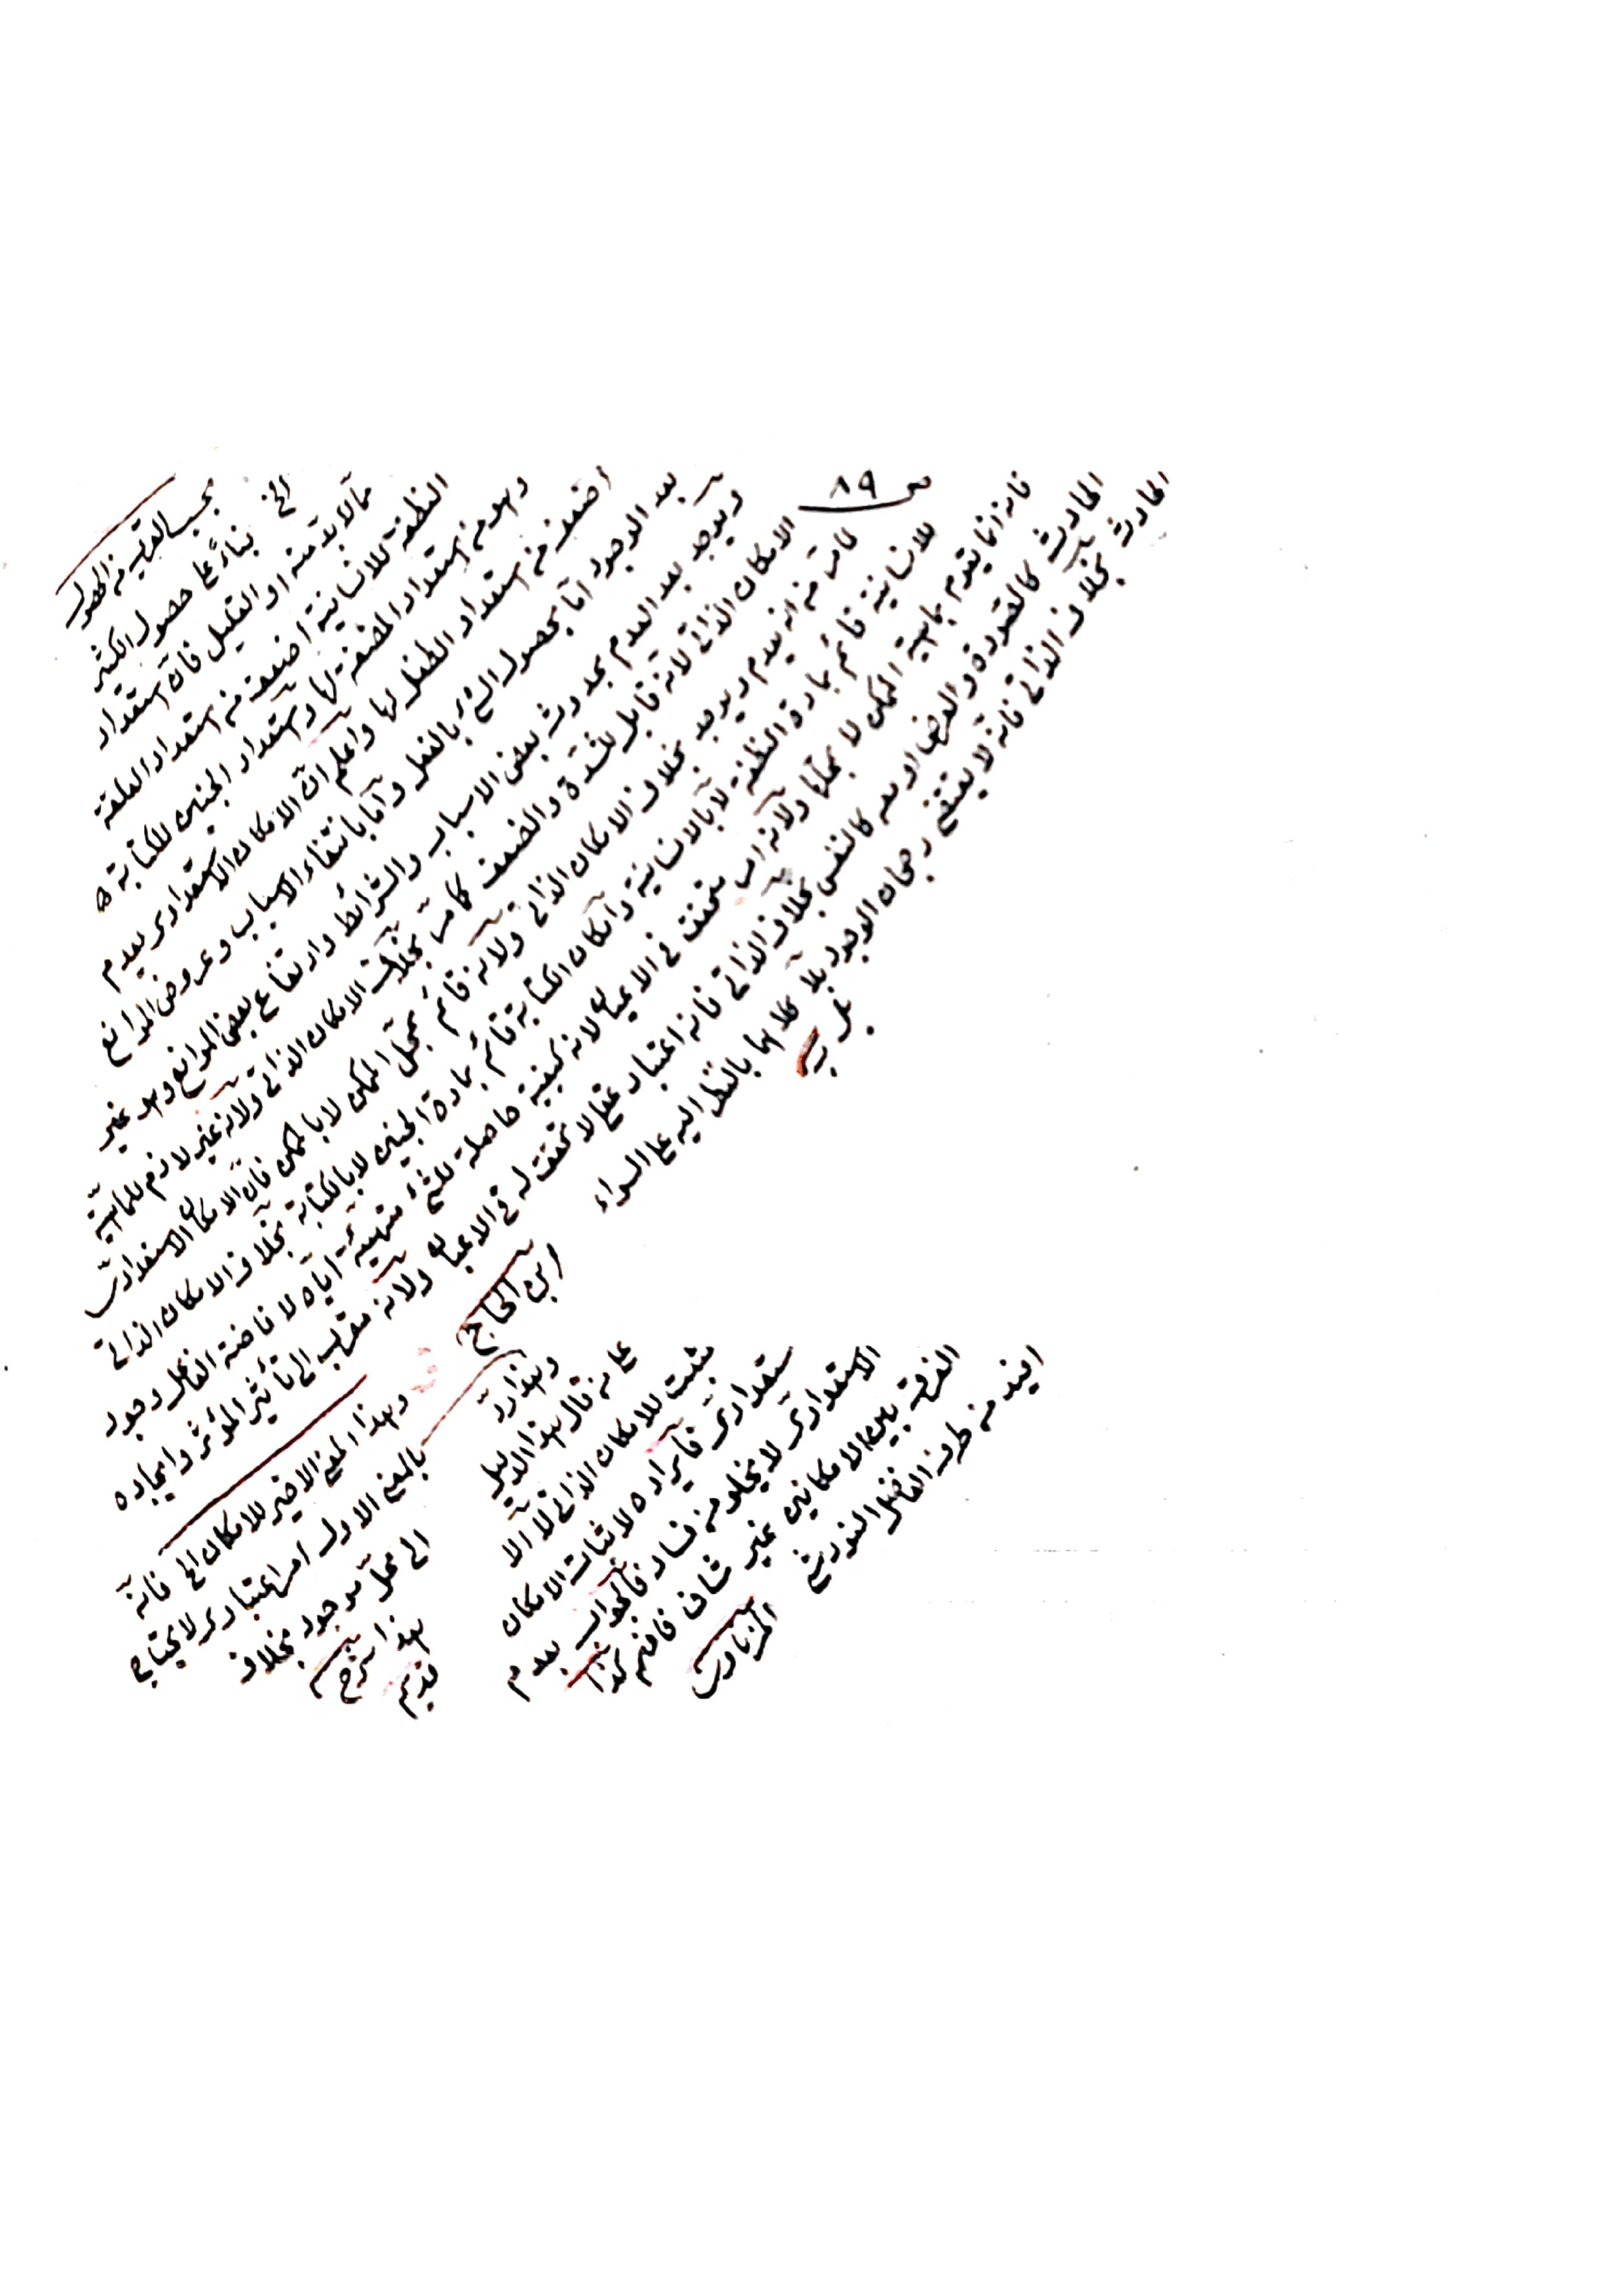 ص ٨٩
بحسب القرب من الحصول
الخ بناءً على حصول الكثير
مما لا بد منه او القليل فان استعداد
النطفة للانسانية اضعف من استعداد العلقة
وهو من استعداد المضغة لها واستعداد الجنين للكتابة
اضعف من استعداد الطفل لها واعلم ان الامكان الاستعدادى يعدم
بعد الوجود اما بحصول الشئ بالفعل واما بانتفاء الاسباب وعروض الموانع
ويوجد بعد العدم بحدوث بعض الاسباب والشرائط وارتفاع بعض الموانع وهو غير
الامكان الذاتى لانه قابل للشدة والضعف كما مر بخلاف الامكان الذاتى ولانه غير لازم للماهية
لما مر من انه يعدم ويوجد بخلاف الامكان الذاتى ولانه قائم بمحل الممكن لا بالممكن فان الامكان الاستعدادى
للانسانية قائم بمادة النطفة لا بالانسانية وامكان الكتابة قائم بمادة الجنين لا بالكتابة بخلاف الامكان الذاتى
فانه انما يقوم بماهية الممكن لا بمحلها ولانه امر متحقق فى الاعيان لانه كيفية حاصلة للشئ مهيئة اياه لافاضة الفاعل وجود
الحادث كالصورة والعرض او معه كالنفس بخلاف الذاتى فانه اعتبار عقلى لا تحقق له فى الاعيان ولانه مقرب الى تأثير المؤثر وايجاده
الحادث بخلاف الذاتى فانه لا يقتضى رجحان الوجود بل كلاهما بالنظر اليه على السواء
ابن الحاج
وهذا المعنى الاخير للامكان الخ فانه
بالمعنى الاول امر اعتبارى لا يحتاج
الى محل موجود بخلاف
هذا شرح
قديم
وهذا رد
على من قال هذا الدليل
يثبت للامكان الذاتى لا الا
ستعدادى فايراده لاثبات الامكان
الاستعدادى لا يخلو من فساد فالجواب بعدم
الفرق بين الامكانين غير شاف فافهم كذا
افيد من طرف الفاضل